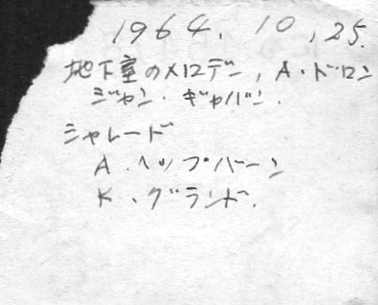 1964. 10, 25.
地下室のメロデー, A・ドロン
ジャン・ギャバン.
シャレード
A.ヘップバーン
K.グランド.